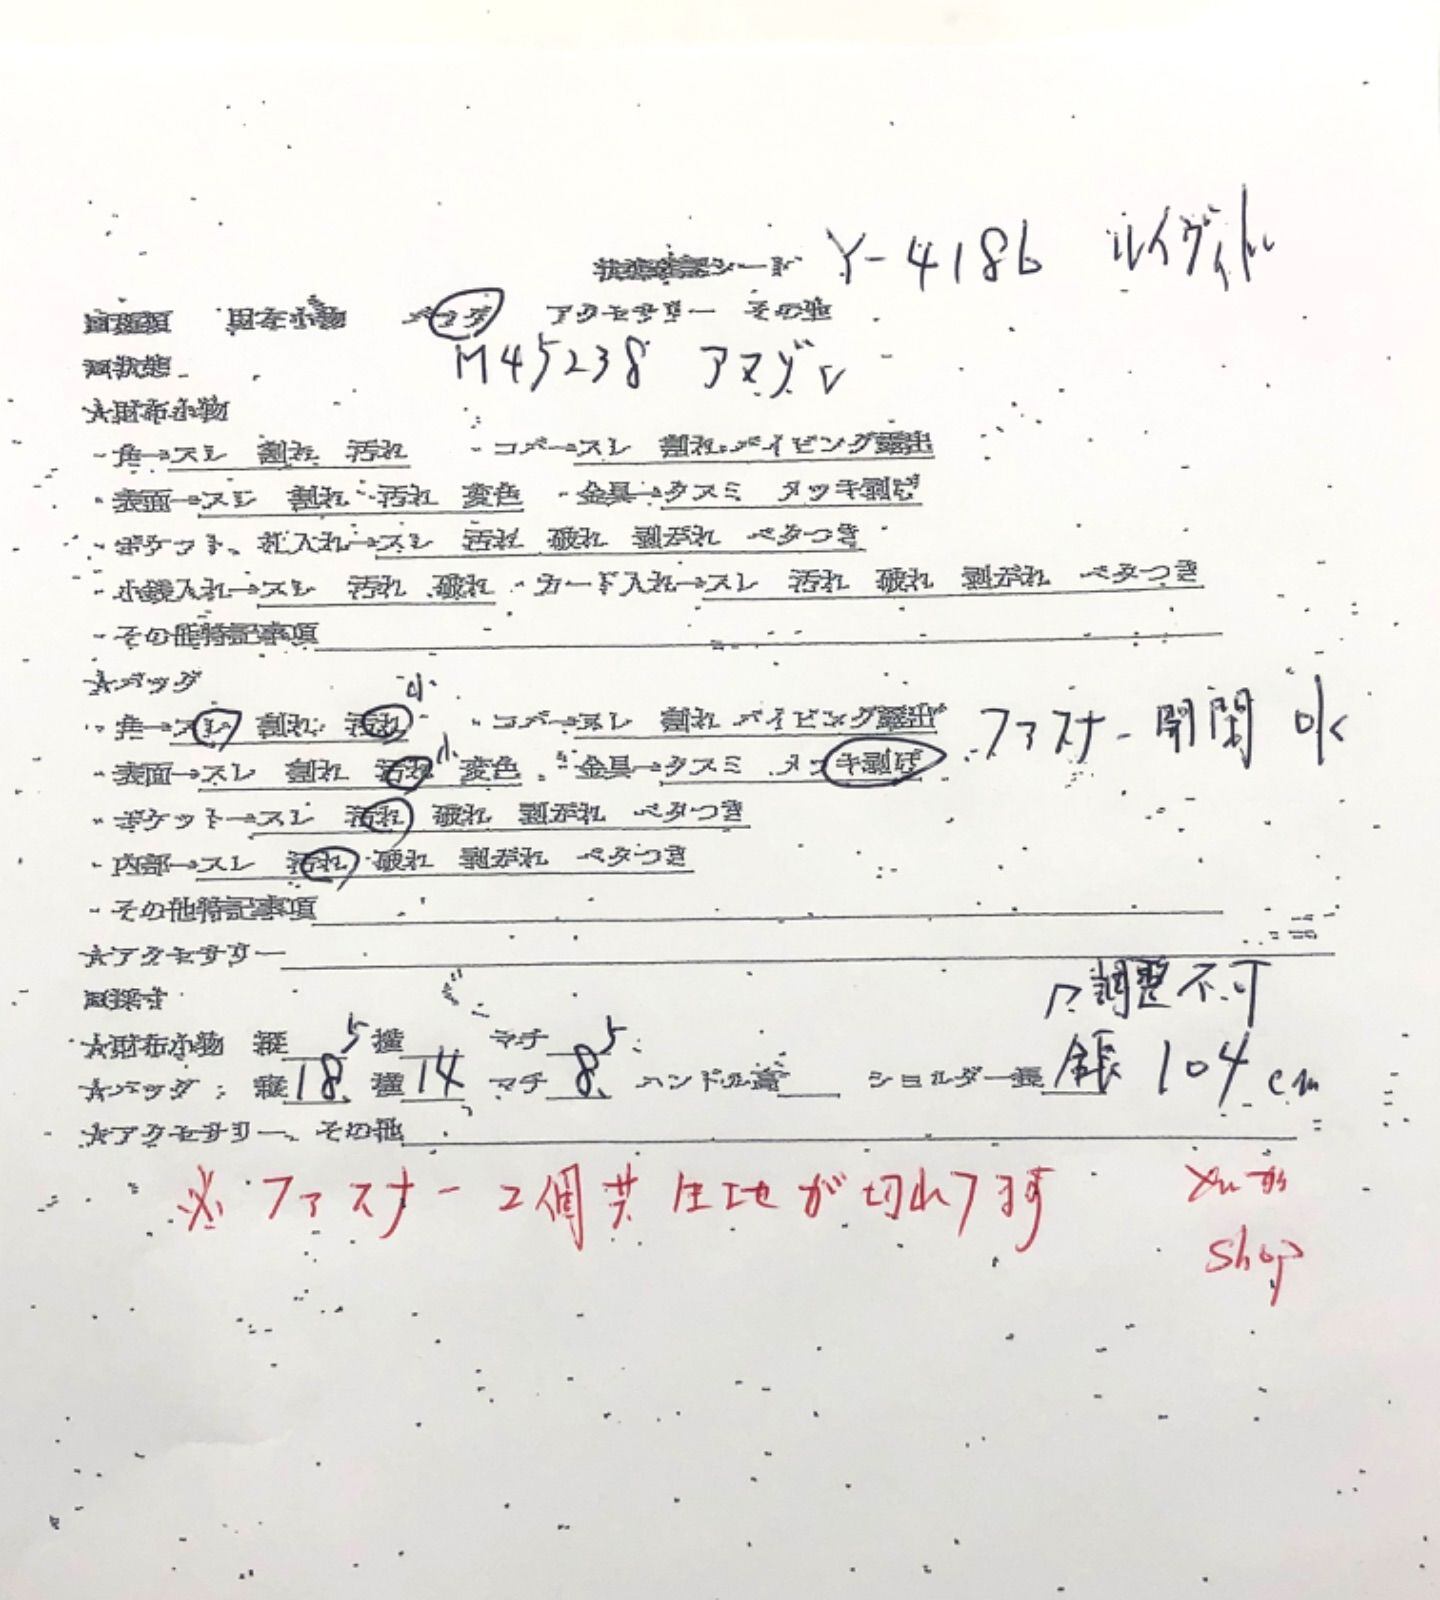 状態確認シート Y-4186 ルイヴィトン
■種類 財布小物 バッグ アクセサリー その他
■状態 M45238 アマゾン
★財布小物
・角→スレ 割れ 汚れ ・コバ→スレ 割れ パイピング露出
・表面→スレ 割れ 汚れ 変色 ・金具→クスミ メッキ剥げ
・ポケット、札入れ→スレ 汚れ 破れ 剥がれ ベタつき
・小銭入れ→スレ 汚れ 破れ ・カード入れ→スレ 汚れ 破れ 剥がれ ベタつき
・その他特記事項
★バッグ
・角→スレ 割れ 汚れ 小 ・コバ→スレ 割れ パイピング露出 ファスナー開閉 OK
・表面→スレ 割れ 汚れ 小 変色 ・金具→クスミ メッキ剥げ
・ポケット→スレ 汚れ 破れ 剥がれ ベタつき
・内部→スレ 汚れ 破れ 剥がれ ベタつき
・その他特記事項
★アクセサリー
■採寸 調整不可
★財布小物 縦 横 マチ
★バッグ 縦18.5 横14 マチ8.5 ハンドル高 ショルダー長 全長 104cm
★アクセサリー、その他
※ ファスナー 2個共 生地が切れてます
shop